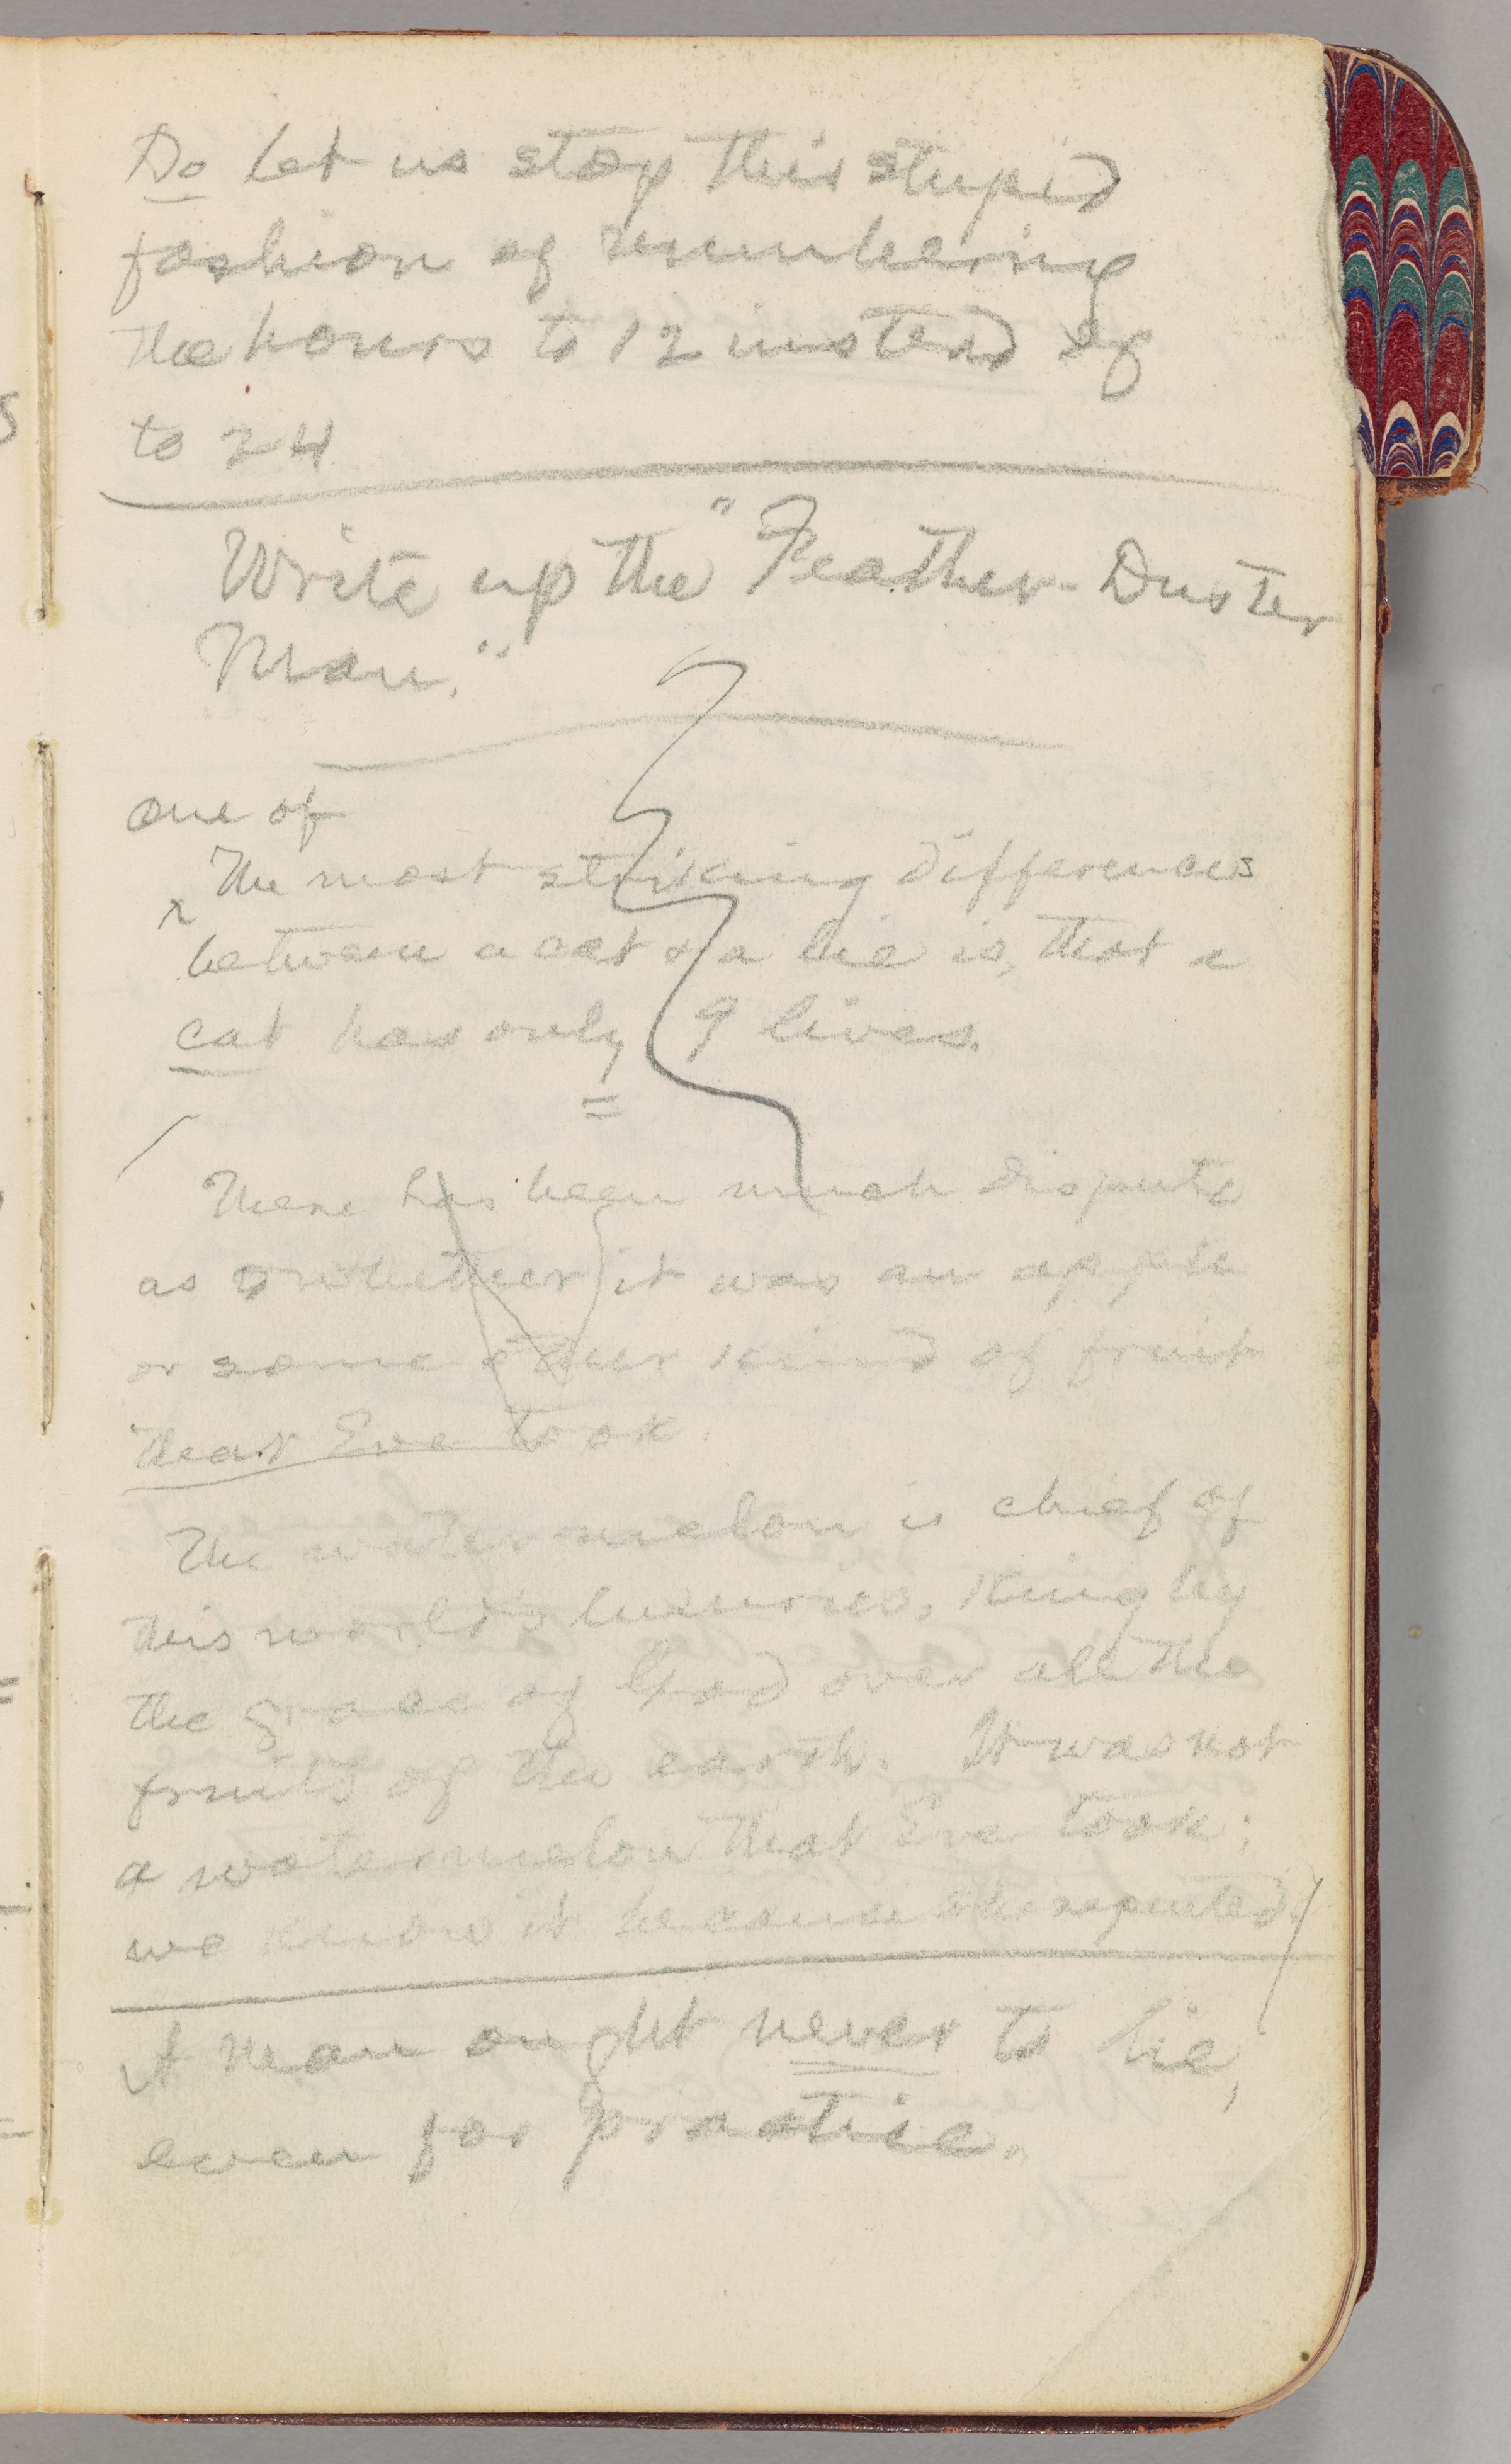 Do let us stop this stupid
fashion of numbering
the hours to 12 instead of
to 24
Write up the "Feather-Duster
Man."
one of
The most striking differences
between a cat & a lie is, that a
cat has only 9 lives.
There has been much dispute
as to whether it was an apple
or some other kind of fruit
that Eve took.
The watermelon is chief of
this world's luxuries, king by
the grace of God over all the
fruits of the earth. It was not
a watermelon that Eve took;
we know it because she repented.
A man ought never to lie,
even for practice.